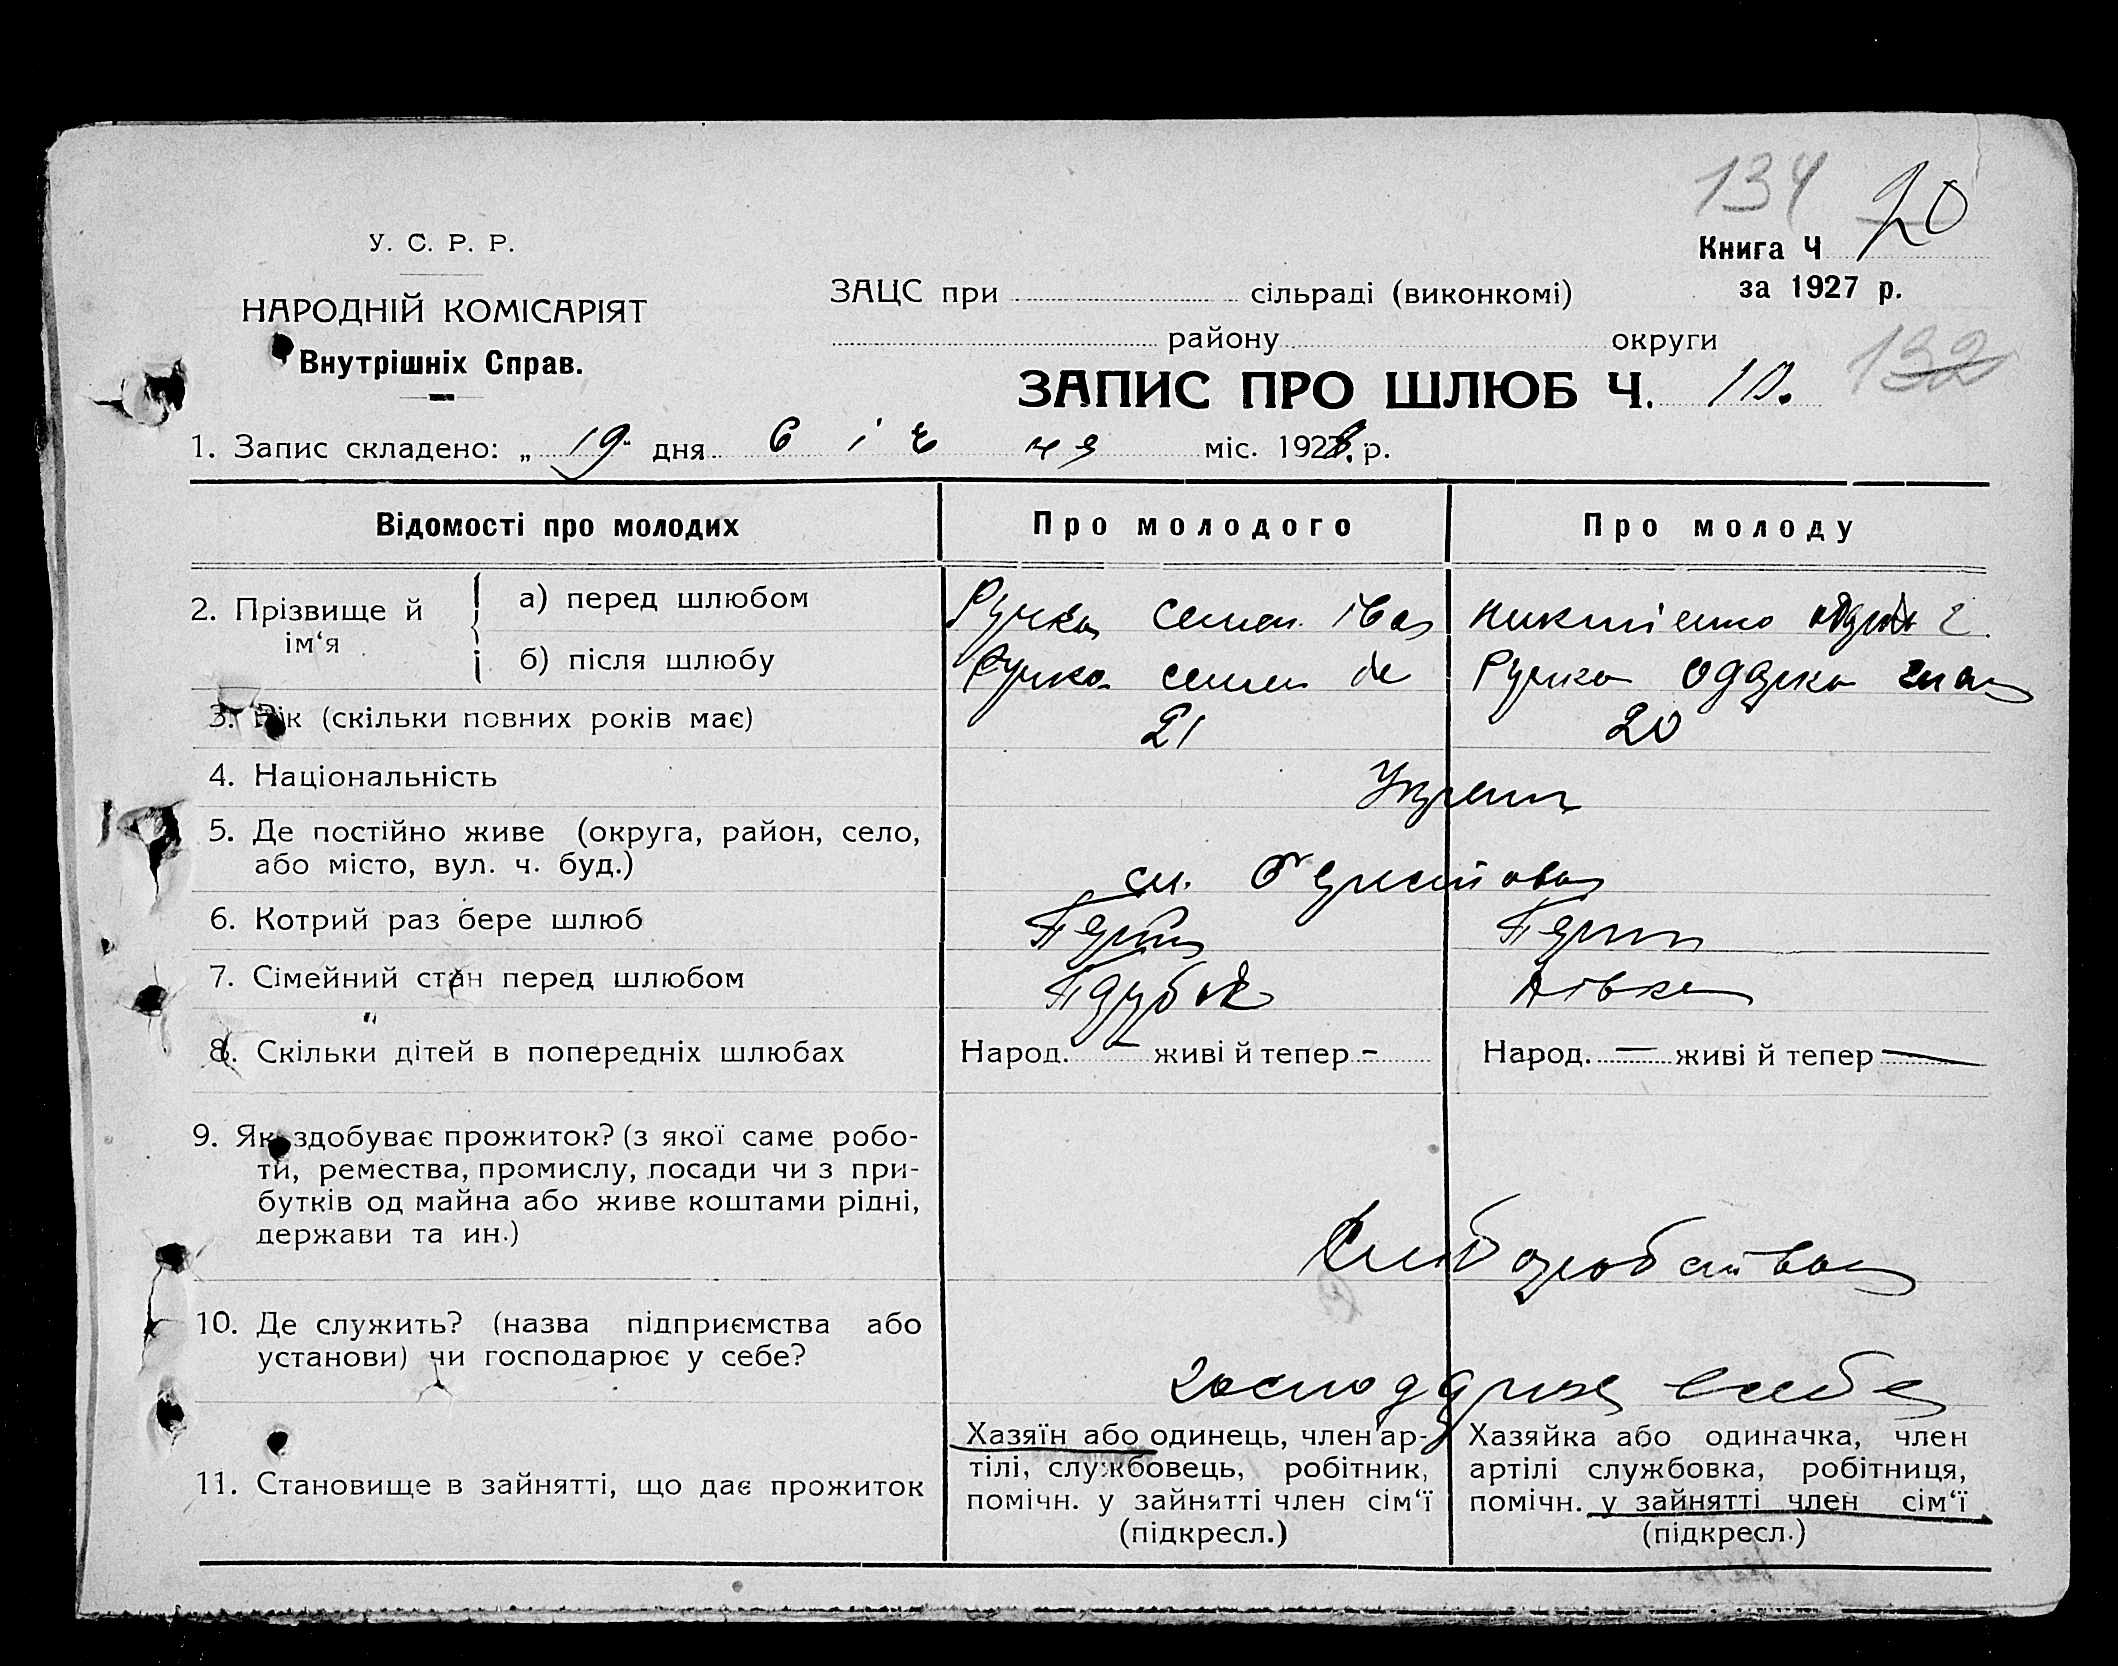 134 20
У. С. Р. Р.
Книга Ч
НАРОДНІЙ КОМІСАРІЯТ
ЗАЦС при сільраді (виконкомі)
за 1927 р.
району округи
Внутрішніх Справ.
132
ЗАПИС ПРО ШЛЮБ Ч. 10.
1. Запис складено: „ 19 дня січня міс. 1928. р.
Відомості про молодих Про молодого Про молоду
2. Прізвище й ім‘я
а) перед шлюбом Ручка Семен Іва
б) після шлюбу Ручка Семен Ручка Одарка
3. Вік (скільки повних років має) 21 20
4. Національність Украін
5. Де постійно живе (округа, район, село,
або місто, вул. ч. буд.)
6. Котрий раз бере шлюб Перш Перш
7. Сімейний стан перед шлюбом Парубок Дівка
8. Скільки дітей в попередніх шлюбах Народ. – живі й тепер – Народ. — живі й тепер —
9. Як здобуває прожиток? (з якої саме робо-
ти, ремества, промислу, посади чи з при-
бутків од майна або живе коштами рідні,
держави та ин.)
Хліборобства
10. Де служить? (назва підприємства або
установи) чи господарює у себе?
11. Становище в зайнятті, що дає прожиток
Хазяїн або одинець, член ар-
тілі, службовець, робітник,
помічн. у зайнятті член сім‘ї
(підкресл.)
Хазяйка або одиначка, член
артілі службовка, робітниця,
помічн. у зайнятті член сім‘ї
(підкресл.)